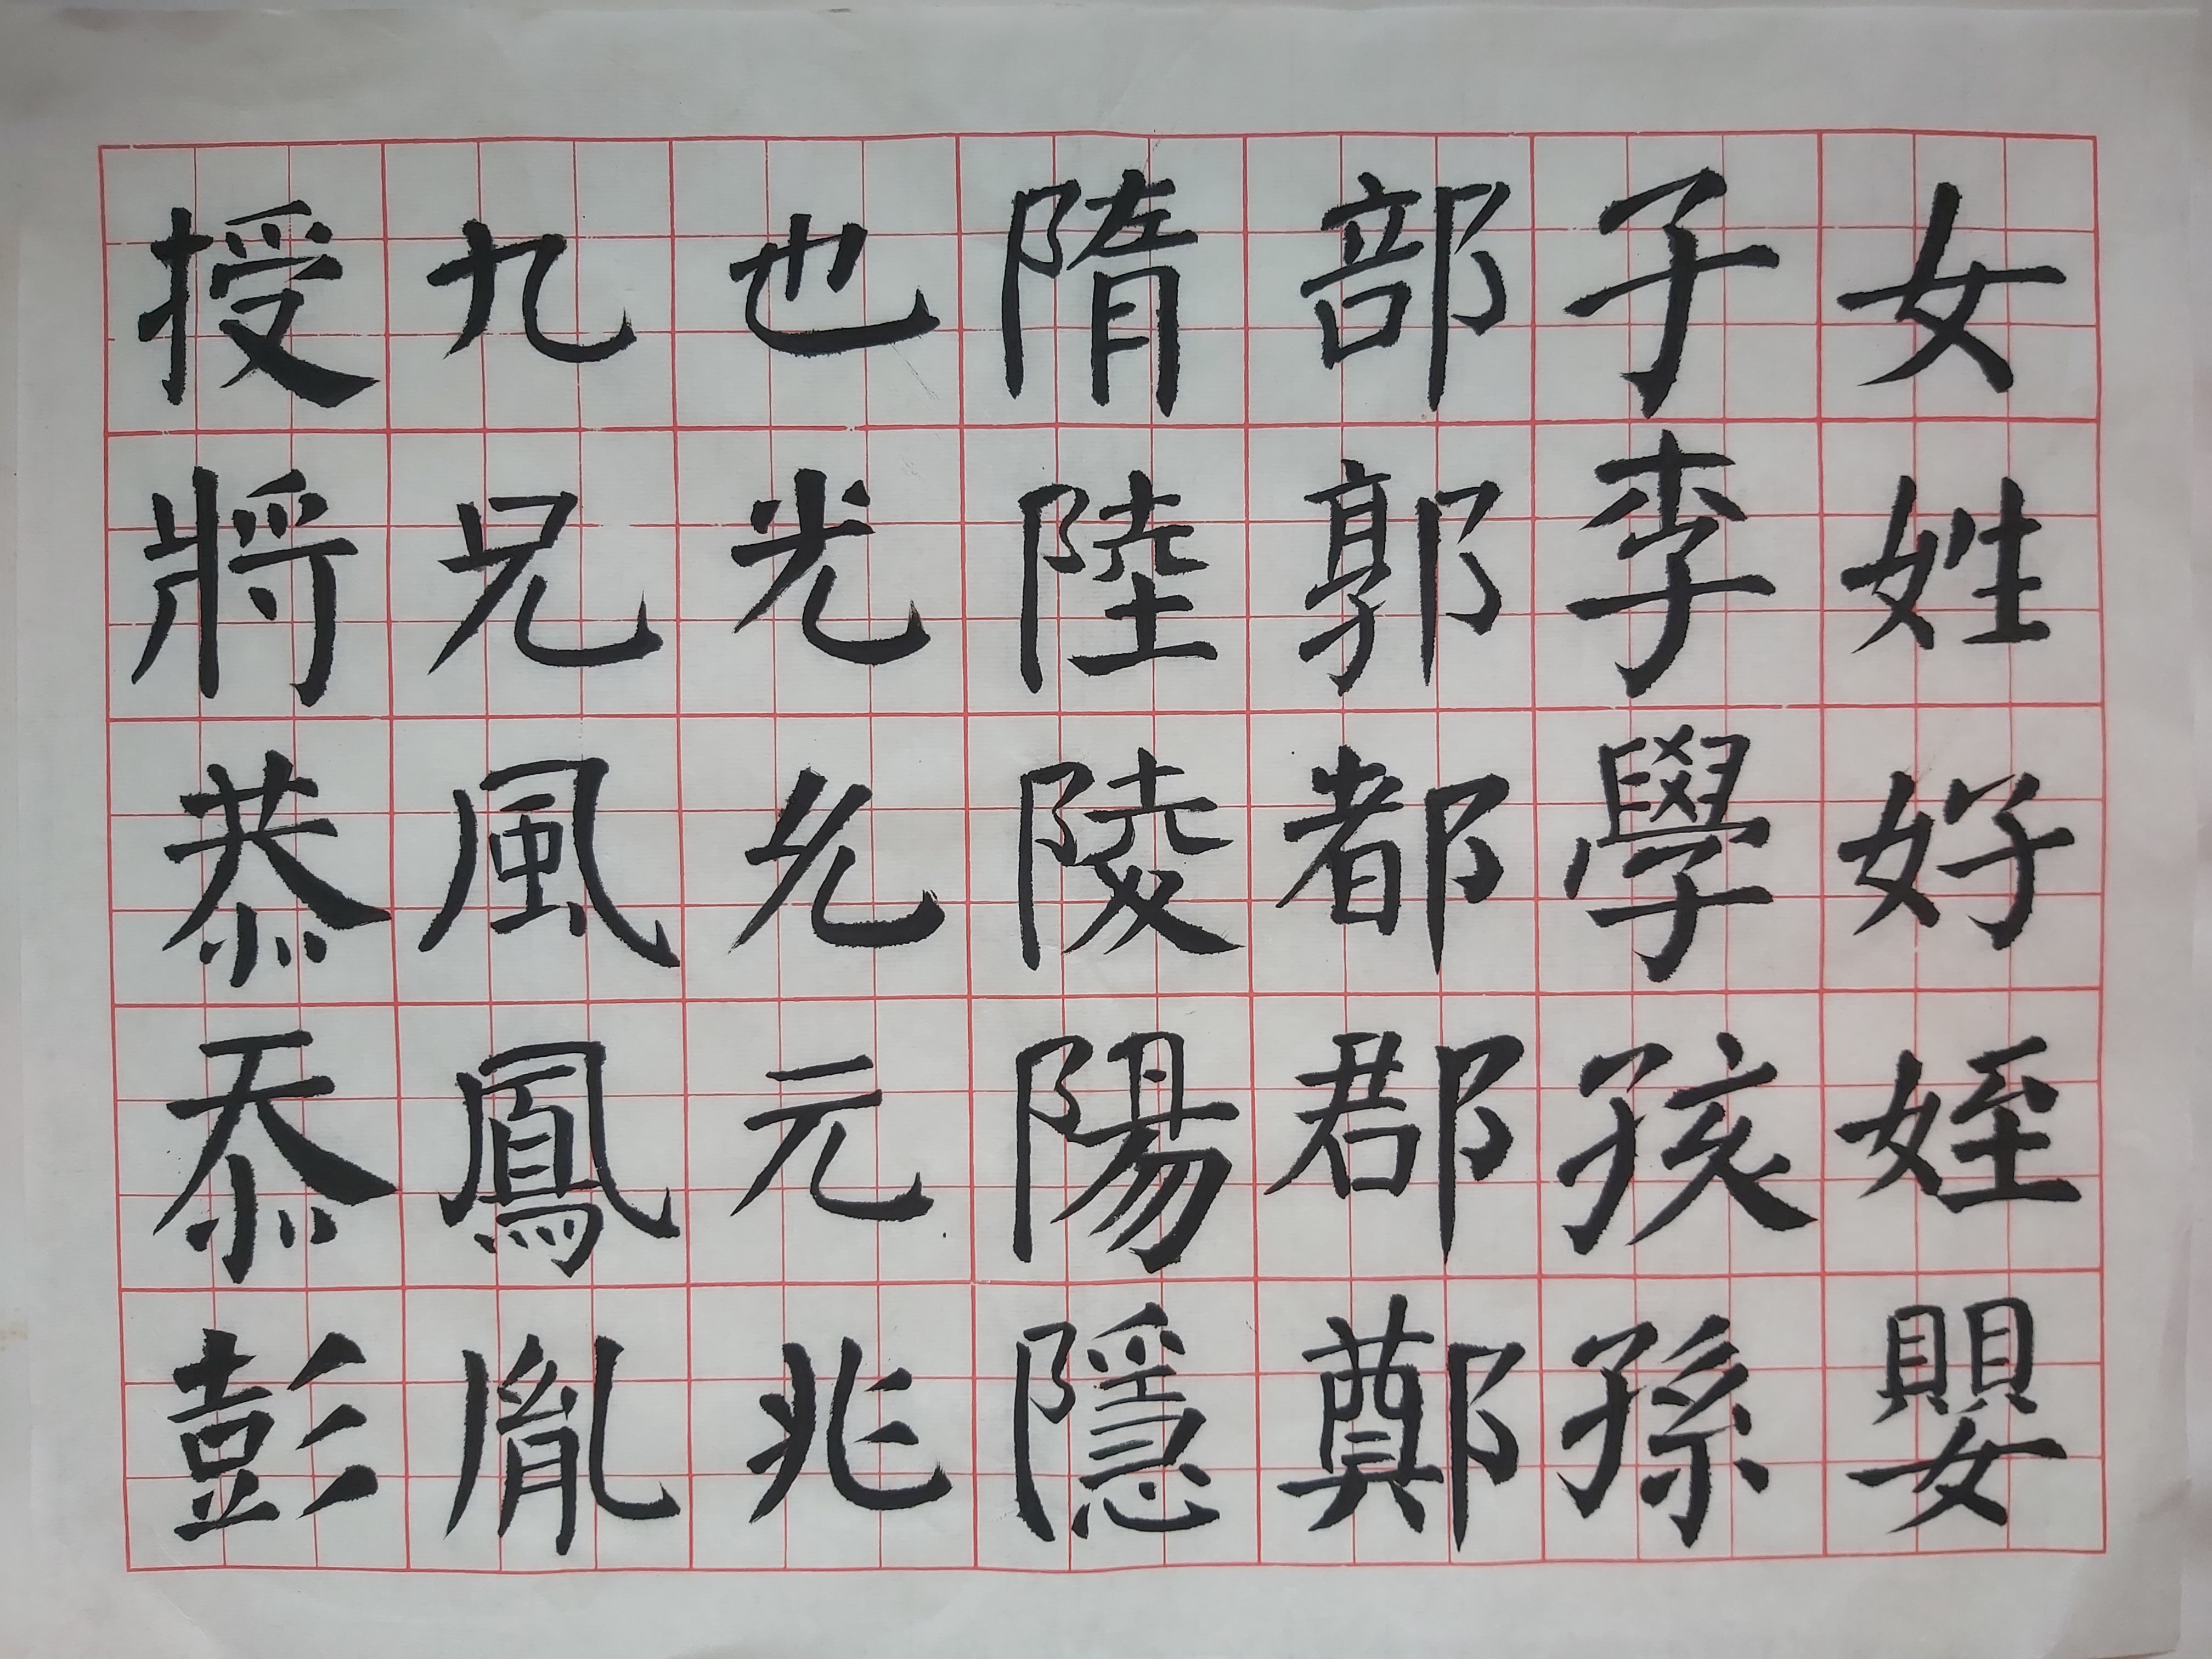 女姓好姪嬰
子李學孩孫
部郭都郡鄭
隋陸陵陽隱
也光允元兆
九兄風鳳胤
授將恭忝彭